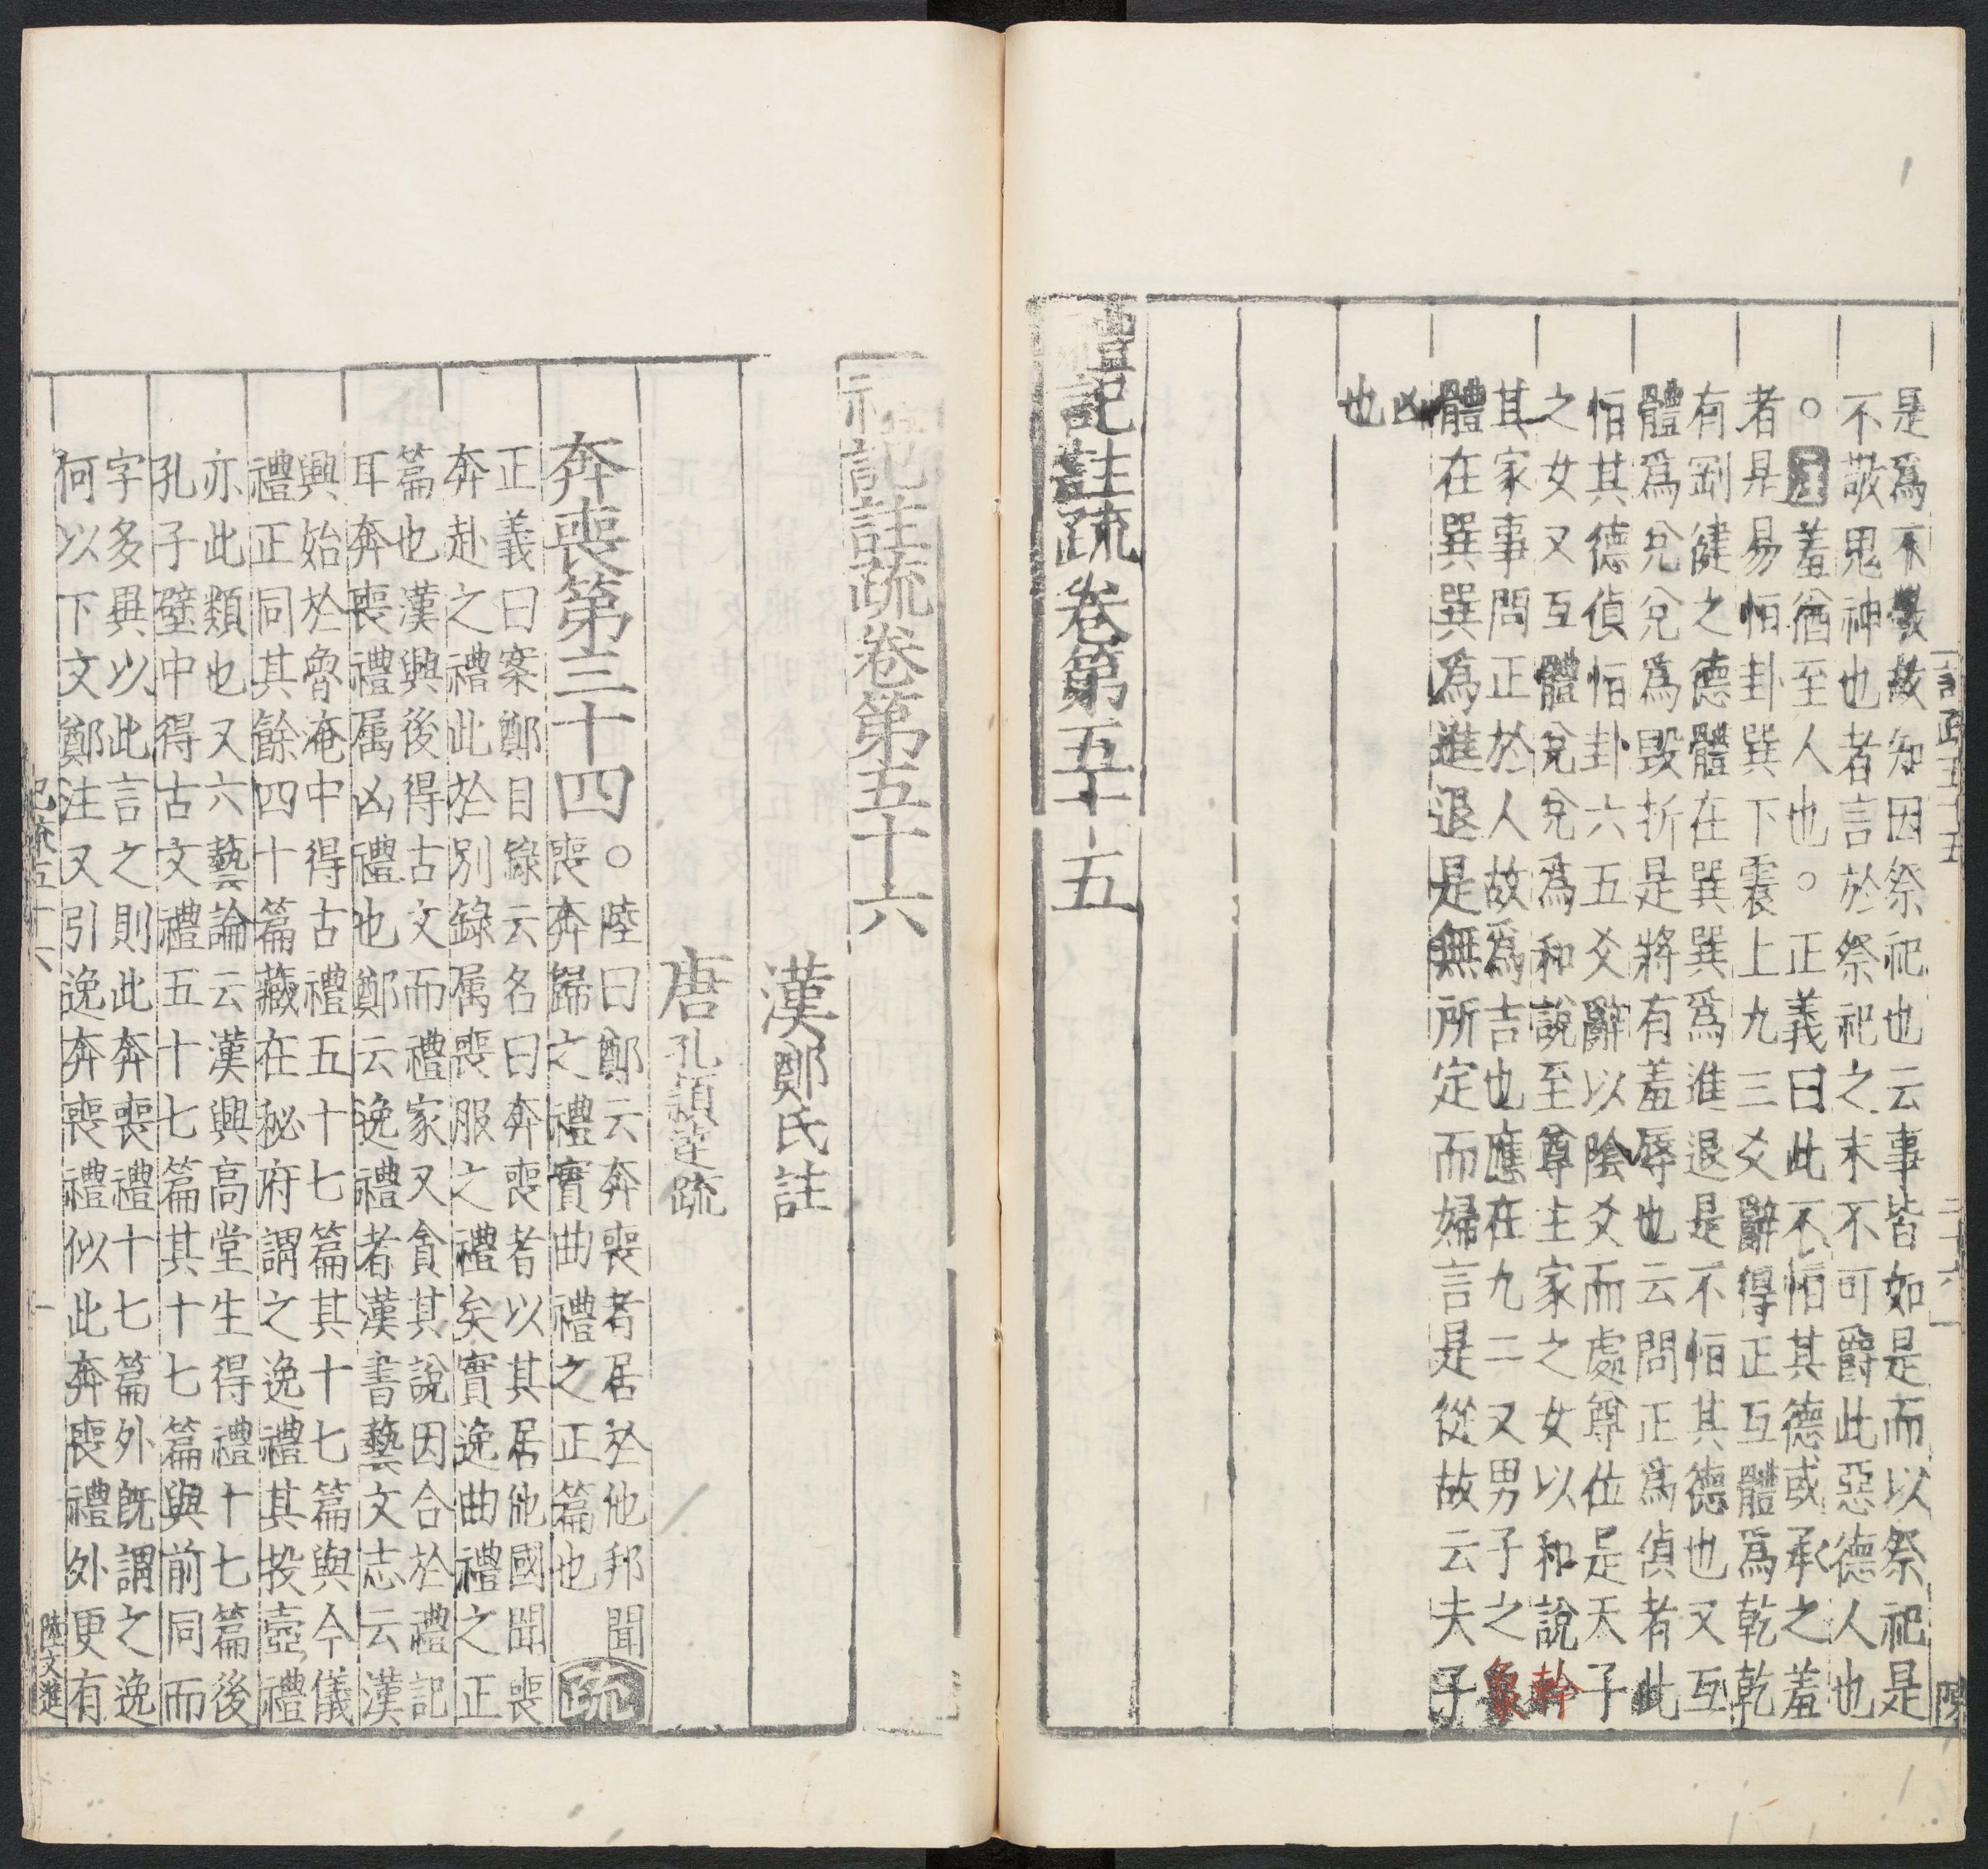 是爲不敬故知因祭祀也云事皆如是而以祭祀是
不敬鬼神也者言於祭祀之末不可爵此惡德人也
○羞猶至人也○正義曰此不恒其德或承之羞
者是易恒卦巽下震上九三爻辭得正互體爲乾乾
有剛健之德體在巽巽爲進退是不恒其德也又互
體爲兌兌爲毀折是將有羞辱也云問正爲偵者此
恒其德偵恒卦六五爻辭以陰爻而處尊位是天子
之女又互體兌兌爲和說至尊主家之女以和說幹
其家事問正於人故爲吉也應在九二又男子之象
體在巽巽爲進退是無所定而婦言是從故云夫子
凶
也
禮記註疏卷第五十五
記疏五十五
二十六
記註疏卷第五十六
漢鄭氏註
唐孔頴達疏
奔喪第三十四
○陸曰鄭云奔喪者居於他邦聞
喪奔歸之禮實曲禮之正篇也
疏
正義曰案鄭目錄云名曰奔喪者以其居他國聞喪
奔赴之禮此於別錄屬喪服之禮矣實逸曲禮之正
篇也漢興後得古文而禮家又貪其說因合於禮記
耳奔喪禮屬凶禮也鄭云逸禮者漢書藝文志云漢
興始於魯淹中得古禮五十七篇其十七篇與今儀
禮正同其餘四十篇藏在秘府謂之逸禮其投壺禮
亦此類也又六藝論云漢興高堂生得禮十七篇後
孔子壁中得古文禮五十七篇其十七篇與前同而
字多異以此言之則此奔喪禮十七篇外旣謂之逸
何以下文鄭注又引逸奔喪禮似此奔喪禮外更有
記疏五十六
一
陸文進